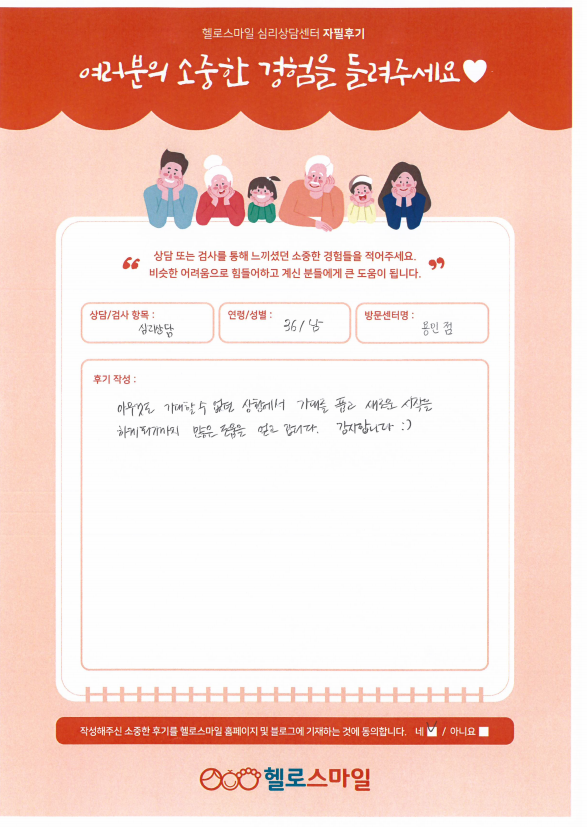 헬로스마일 심리상담센터 자필후기
여러분의 소중한 경험을 들려주세요
“ 상담 또는 검사를 통해 느끼셨던 소중한 경험들을 적어주세요.
비슷한 어려움으로 힘들어하고 계신 분들에게 큰 도움이 됩니다. ”
상담/검사 항목 : 심리상담
연령/성별 : 36/남
방문센터명 : 용인점
후기 작성 :
아무것도 기대할 수 없던 상황에서 기대를 품고 새로운 시작을
하게 되기까지 많은 도움을 얻고 갑니다. 감사합니다 :)
작성해주신 소중한 후기를 헬로스마일 홈페이지 및 블로그에 기재하는 것에 동의합니다. 네 / 아니요
헬로스마일